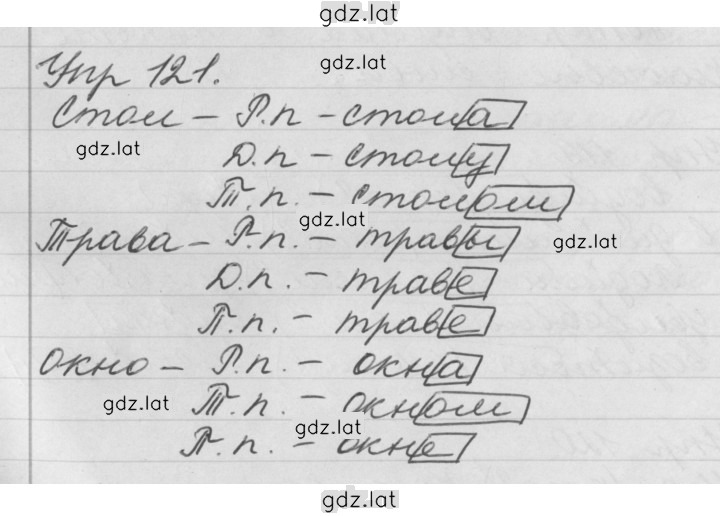 gdz.lat
Упр 121.
gdz.lat
Стол – Р.п – стол а
gdz.lat
Д.п – столу
Т.п. – столом
gdz.lat
Трава – Р.п. – травы
gdz.lat
Д.п. – траве
П.п. – траве
окно – Р.п. – окна
gdz.lat
Т.п. – окном
gdz.lat
П.п. – окне
gdz.lat